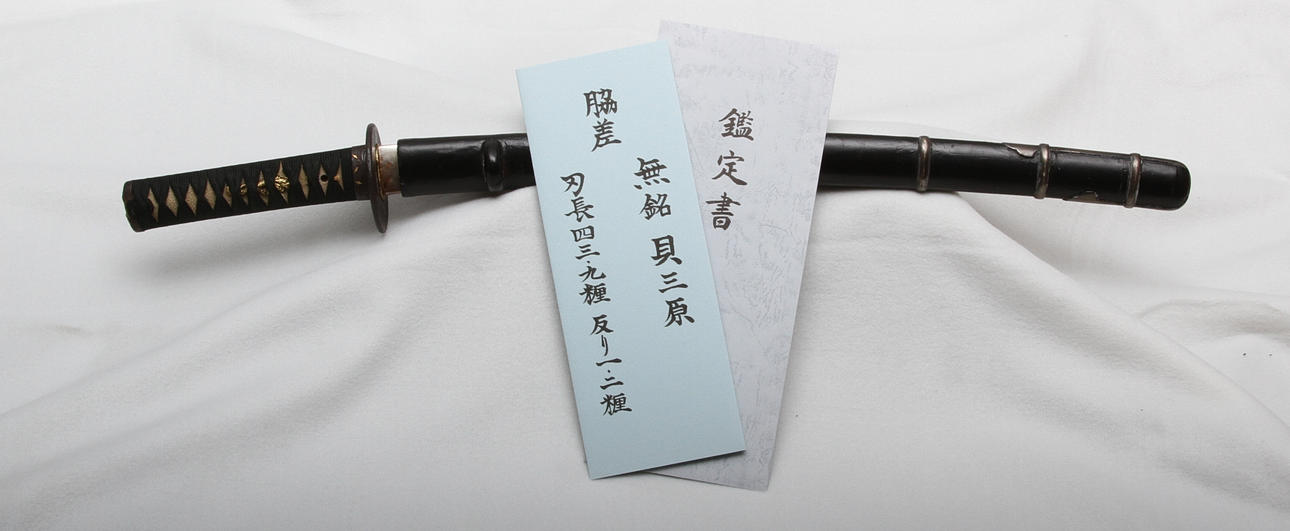 脇差
無銘 貝三原
刃長四三・九糎 反り一・二糎
鑑定書